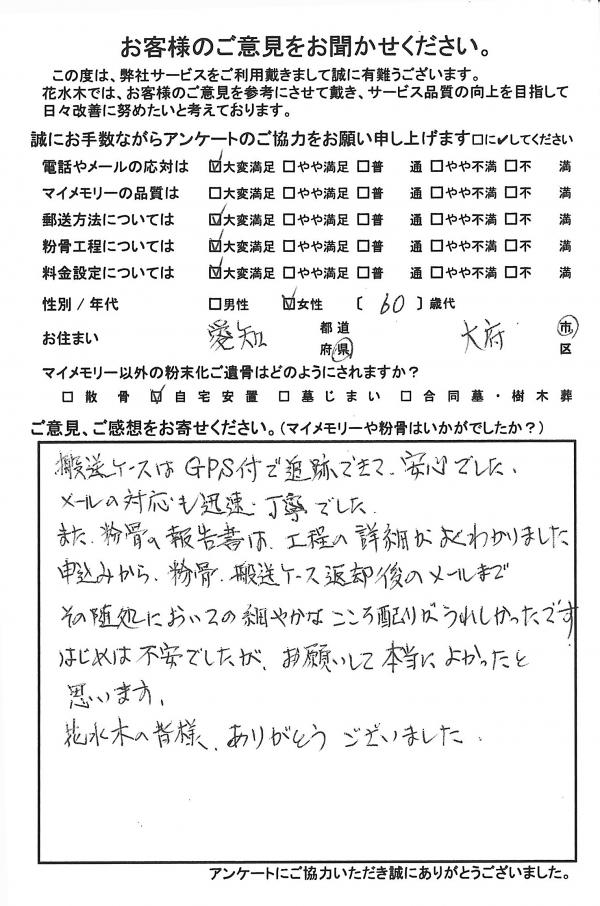 お客様のご意見をお聞かせください。
この度は、弊社サービスをご利用戴きまして誠に有難うございます。
花水木では、お客様のご意見を参考にさせて戴き、サービス品質の向上を目指して
日々改善に努めたいと考えております。
誠にお手数ながらアンケートのご協力をお願い申し上げます□に✔してください
電話やメールの応対は ☑大変満足 □やや満足 □普 通 □やや不満 □不 満
マイメモリーの品質は □大変満足 □やや満足 □普 通 □やや不満 □不 満
郵送方法については ☑大変満足 □やや満足 □普 通 □やや不満 □不 満
粉骨工程については ☑大変満足 □やや満足 □普 通 □やや不満 □不 満
料金設定については ☑大変満足 □やや満足 □普 通 □やや不満 □不 満
性別 / 年代 □男性 ☑女性 〔 60 〕歳代
お住まい 愛知 都道府県 大府 市区
マイメモリー以外の粉末化ご遺骨はどのようにされますか？
□散骨 ☑自宅安置 □墓じまい □合同墓・樹木葬
ご意見、ご感想をお寄せください。(マイメモリーや粉骨はいかがでしたか？)
搬送ケースはGPS付で追跡できて、安心でした。
メールの対応も迅速・丁寧でした。
また、粉骨の報告書は、工程の詳細がよくわかりました
申込みから、粉骨、搬送ケース返却後のメールまで
その随処においての細やかなこころ配りがうれしかったです
はじめは不安でしたが、お願いして本当によかったと
思います。
花水木の皆様、ありがとうございました。
アンケートにご協力いただき誠にありがとうございました。